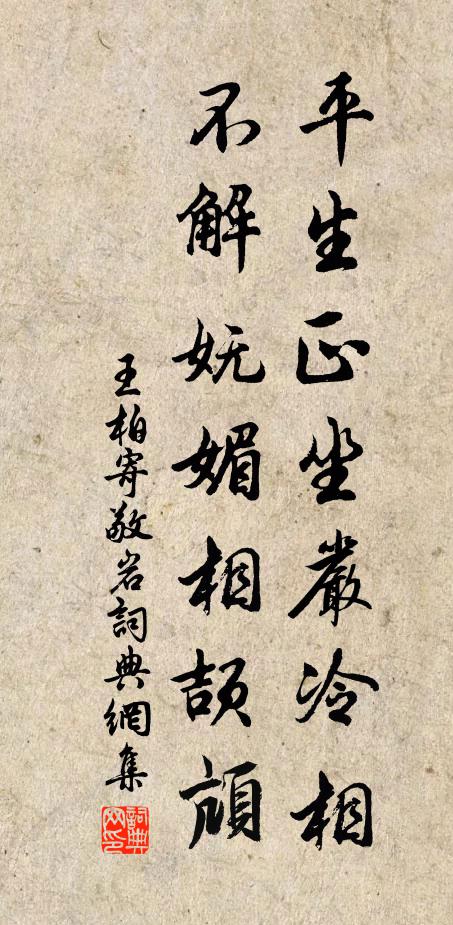 平生正坐嚴冷相
不解妩媚相頡頏
王柏寄敬岩詞典網集
詞典网印